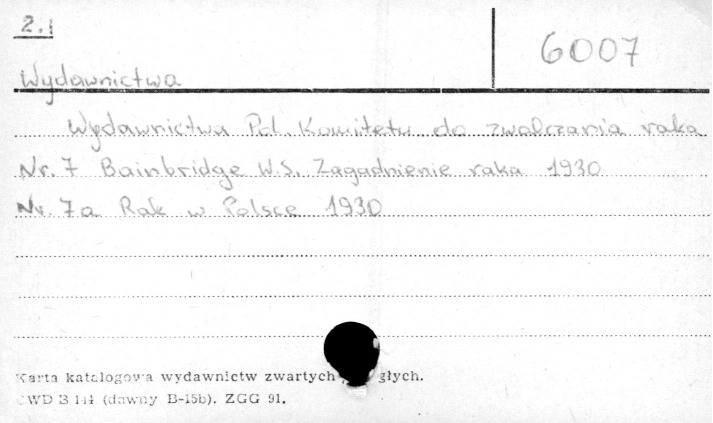 2.
6007
Wydawnictwa
Wydawnictwa Pol. Komitetu do zwalczania raka
Nr. 7 Bainbridge W.S. Zagadnienie raka 1930
Nr. 7a Rak w Polsce 1930
Karta katalogowa wydawnictw zwartych głych.
CWD B 144 (dawny B-15b). ZGG 91.